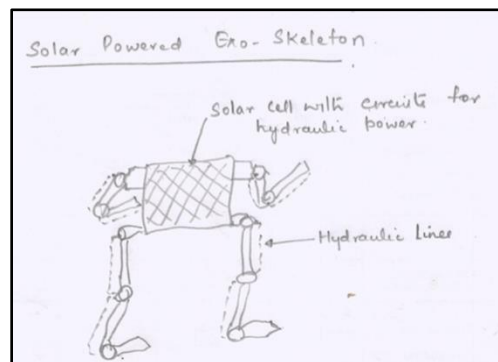 Solar Powered Exo-Skeleton.
Solar cell with circuits for
hydraulic power.
Hydraulic Lines